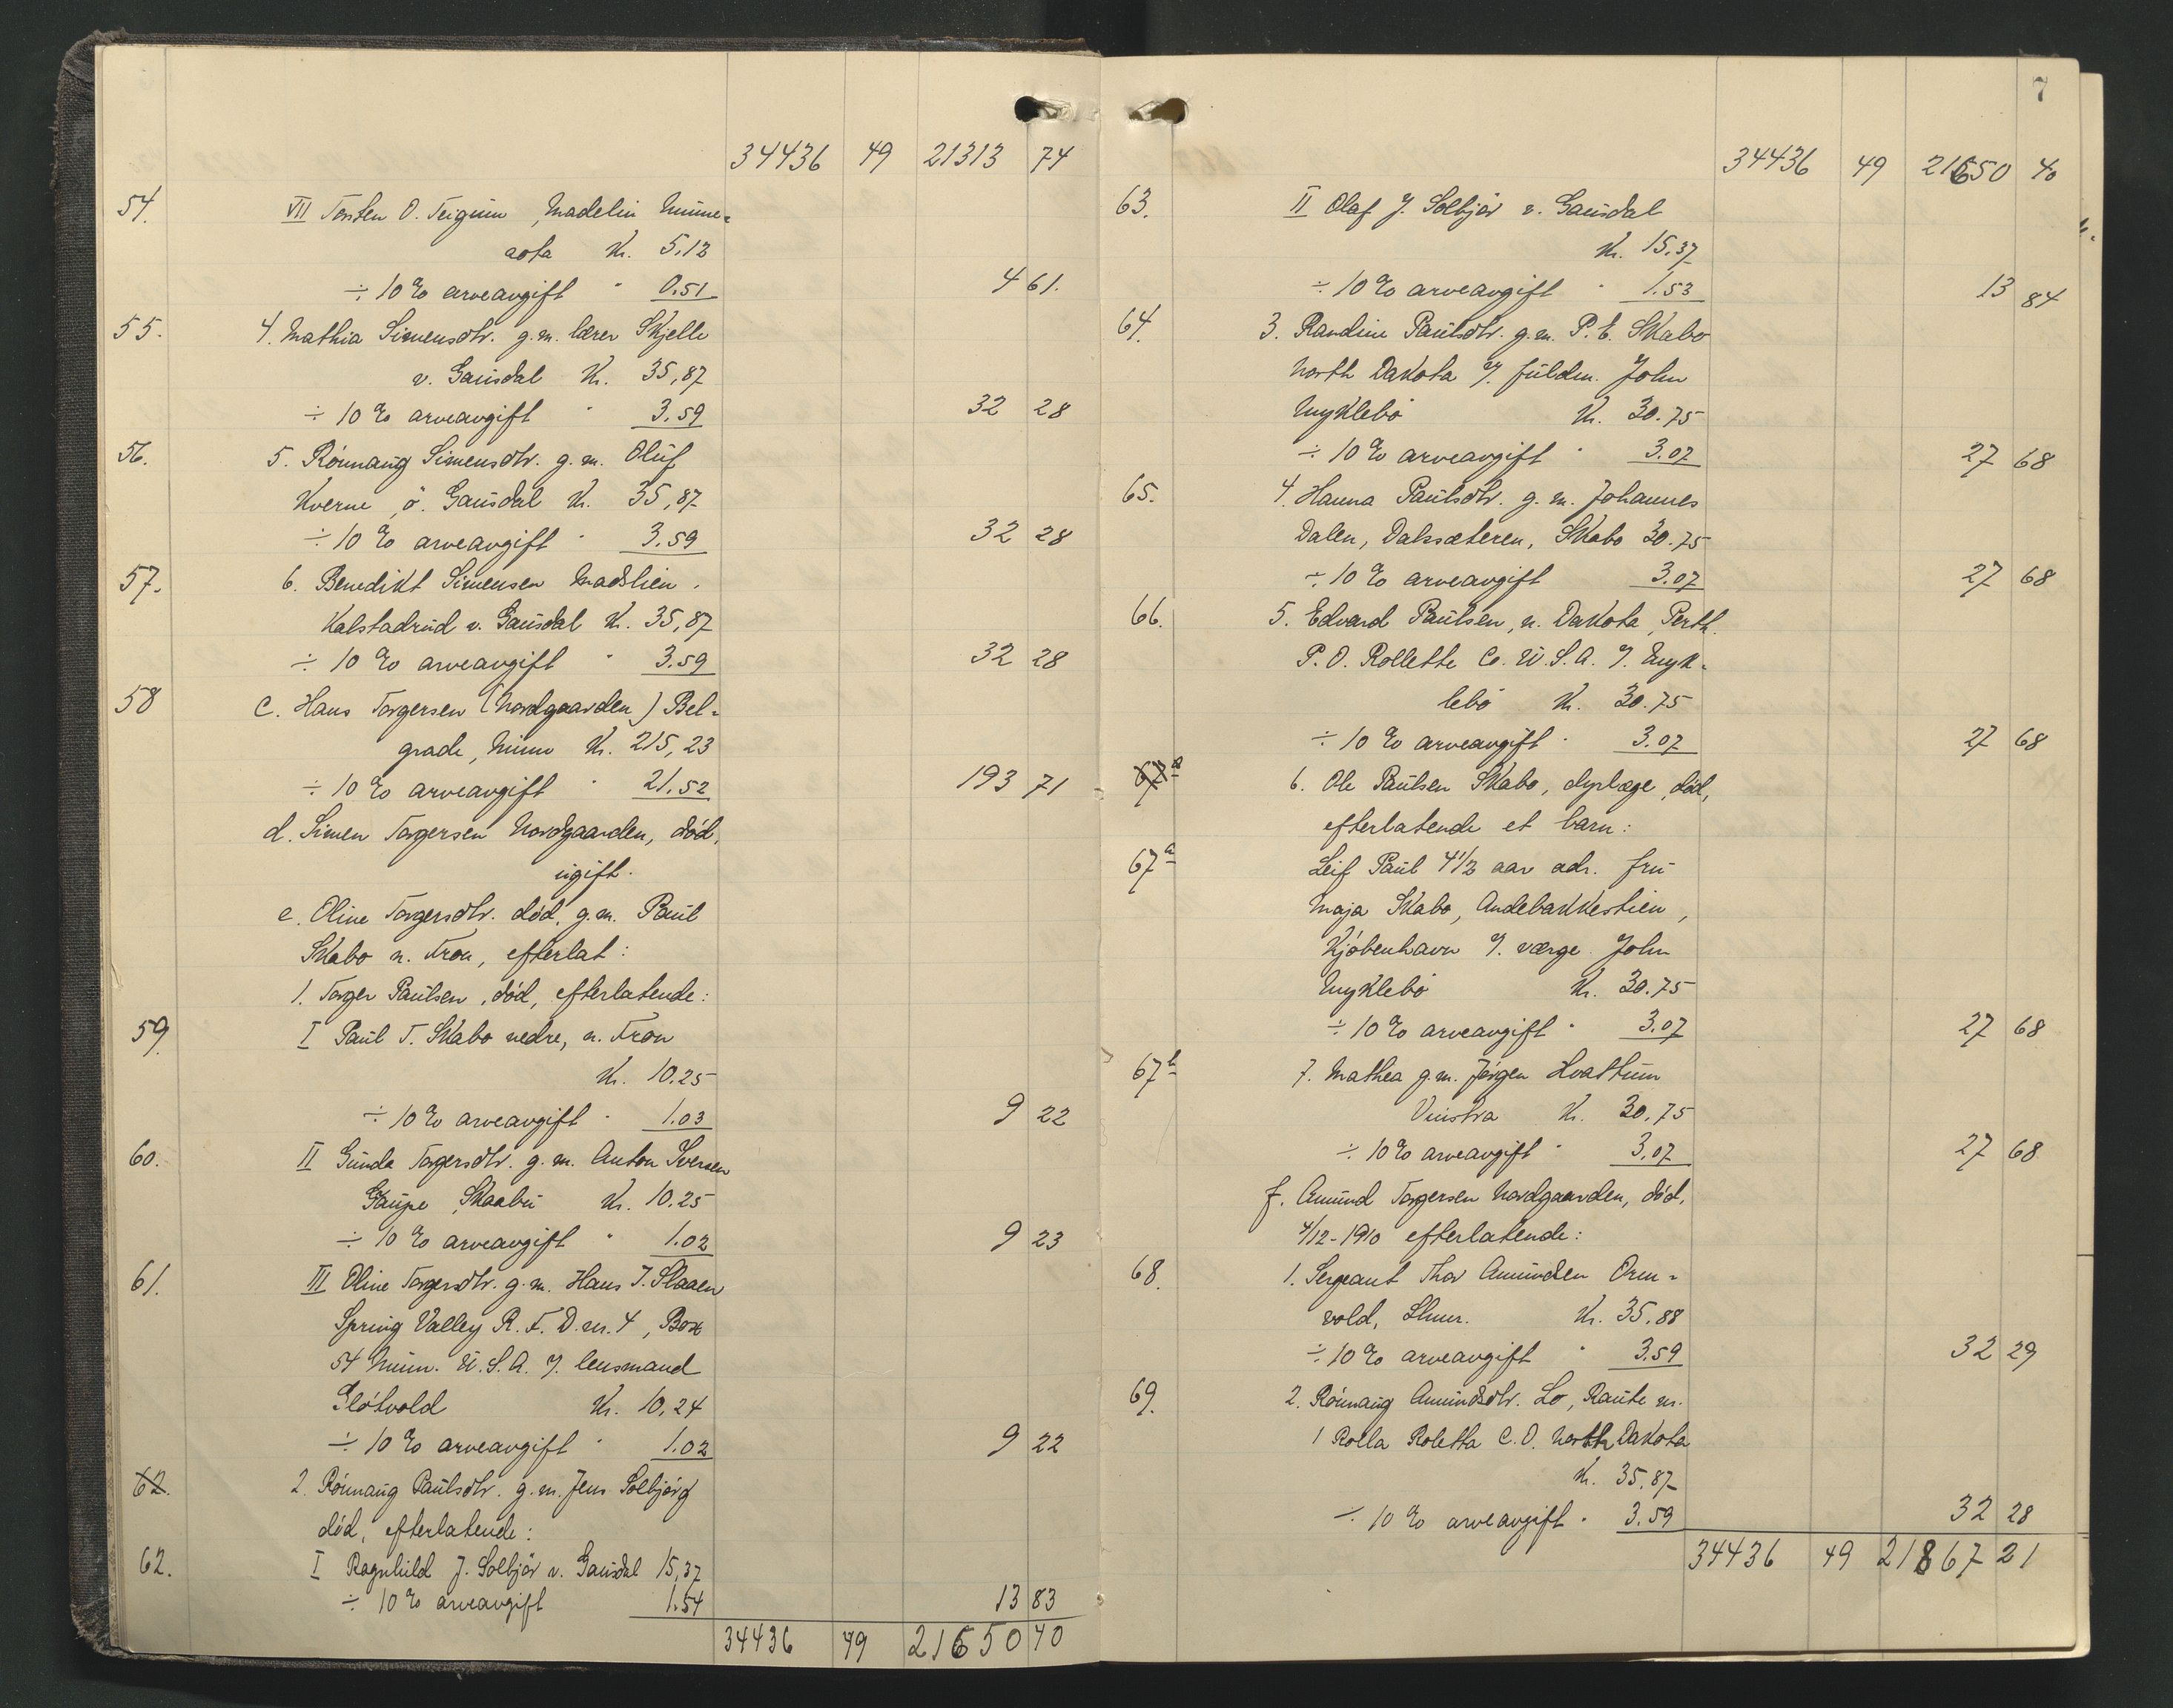 34436 49 21313 74
54. VII Torsten O. Teigum, Madelia Minne-
sota Kr. 5.12
÷ 10 % arveavgift " 0.51 4 61.
55. 4. Mathia Simensdtr. g.m. lærer Skjelle
v. Gausdal Kr. 35,87
÷ 10 % arveavgift " 3.59 32 28
56. 5. Rønnaug Simensdtr. g.m. Oluf
Kverne, ö. Gausdal Kr. 35,87
÷ 10 % arveavgift " 3.59 32 28
57. 6. Benedikt Simensen Madslien.
Kalstadrud v. Gausdal Kr. 35,87
÷ 10 % arveavgift " 3.59 32 28
58 c. Hans Torgersen (Nordgaarden) Bel-
grade, Minn Kr. 215,23
÷ 10 % arveavgift " 21.52 193 71
d. Simen Torgersen Nordgaarden, død,
ugift.
e. Oline Torgersdtr. død, g.m. Paul
Skabo n. Fron, efterlat:
1. Torger Paulsen, død, efterlatende:
59. I Paul T. Skabo nedre, n. Fron
Kr. 10.25
÷ 10 % arveavgift " 1.03 9 22
60. II Gunda Torgersdtr. g.m. Anton Iversen
Gaupe, Skaabu Kr. 10.25
÷ 10 % arveavgift " 1.02 9 23
61. III Oline Torgersdtr. g.m. Hans J. Slaaen
Spring Valley R. F. D. nr. 4, Box
54 Minn. U.S.A. v. lensmand
Gløtvold Kr. 10,24
÷ 10 % arveavgift " 1.02 9 22
62. 2. Rønnaug Paulsdtr. g.m. Jens Solbjørg
død, efterlatende:
62. I Ragnhild J. Solbjør v. Gausdal 15,37
÷ 10 % arveavgift 1.54 13 83
34436 49 21650 40
7
34436 49 21650 40
63. II Olaf J. Solbjør v. Gausdal
Kr. 15.37
÷ 10 % arveavgift " 1.53 13 84
64. 3. Randine Paulsdtr. g.m. P. E. Skabo
North Dakota v. fuldm. John
Nyklebø Kr. 30.75
÷ 10 % arveavgift " 3.07 27 68
65. 4. Hanna Paulsdtr. g.m. Johannes
Dalen, Dalssæteren, Skabo 30.75
÷ 10 % arveavgift 3.07 27 68
66. 5. Edvard Paulsen, n. Dakota, Perth.
P.O. Rollette Co. U.S.A. v. Nyk-
lebø Kr. 30.75
÷ 10 % arveavgift " 3.07 27 68
67a 6. Ole Paulsen Skabo, dyrlæge, død,
efterlatende et barn:
67a Leif Paul 4 1/2 aar adr. fru
Maja Skabo, Andebakkestien,
Kjøbenhavn v. værge John
Nyklebø Kr. 30.75
÷ 10 % arveavgift " 3.07 27 68
67b 7. Mathea g.m. Jørgen Hvattum
Vinstra Kr. 30.75
÷ 10 % arveavgift " 3.07 27 68
f. Amund Torgersen Nordgaarden, død,
4/12-1910 efterlatende:
68. 1. Sergeant Thor Amundsen Orm-
vold, Lhmr. Kr. 35.88
÷ 10 % arveavgift " 3.59 32 29
69. 2. Rønnaug Amundsdtr. Lo, Raute nr.
1 Rolla Roletta C.O. North Dakota
Kr. 35,87
÷ 10 % arveavgift " 3.59 32 28
34436 49 21867 21